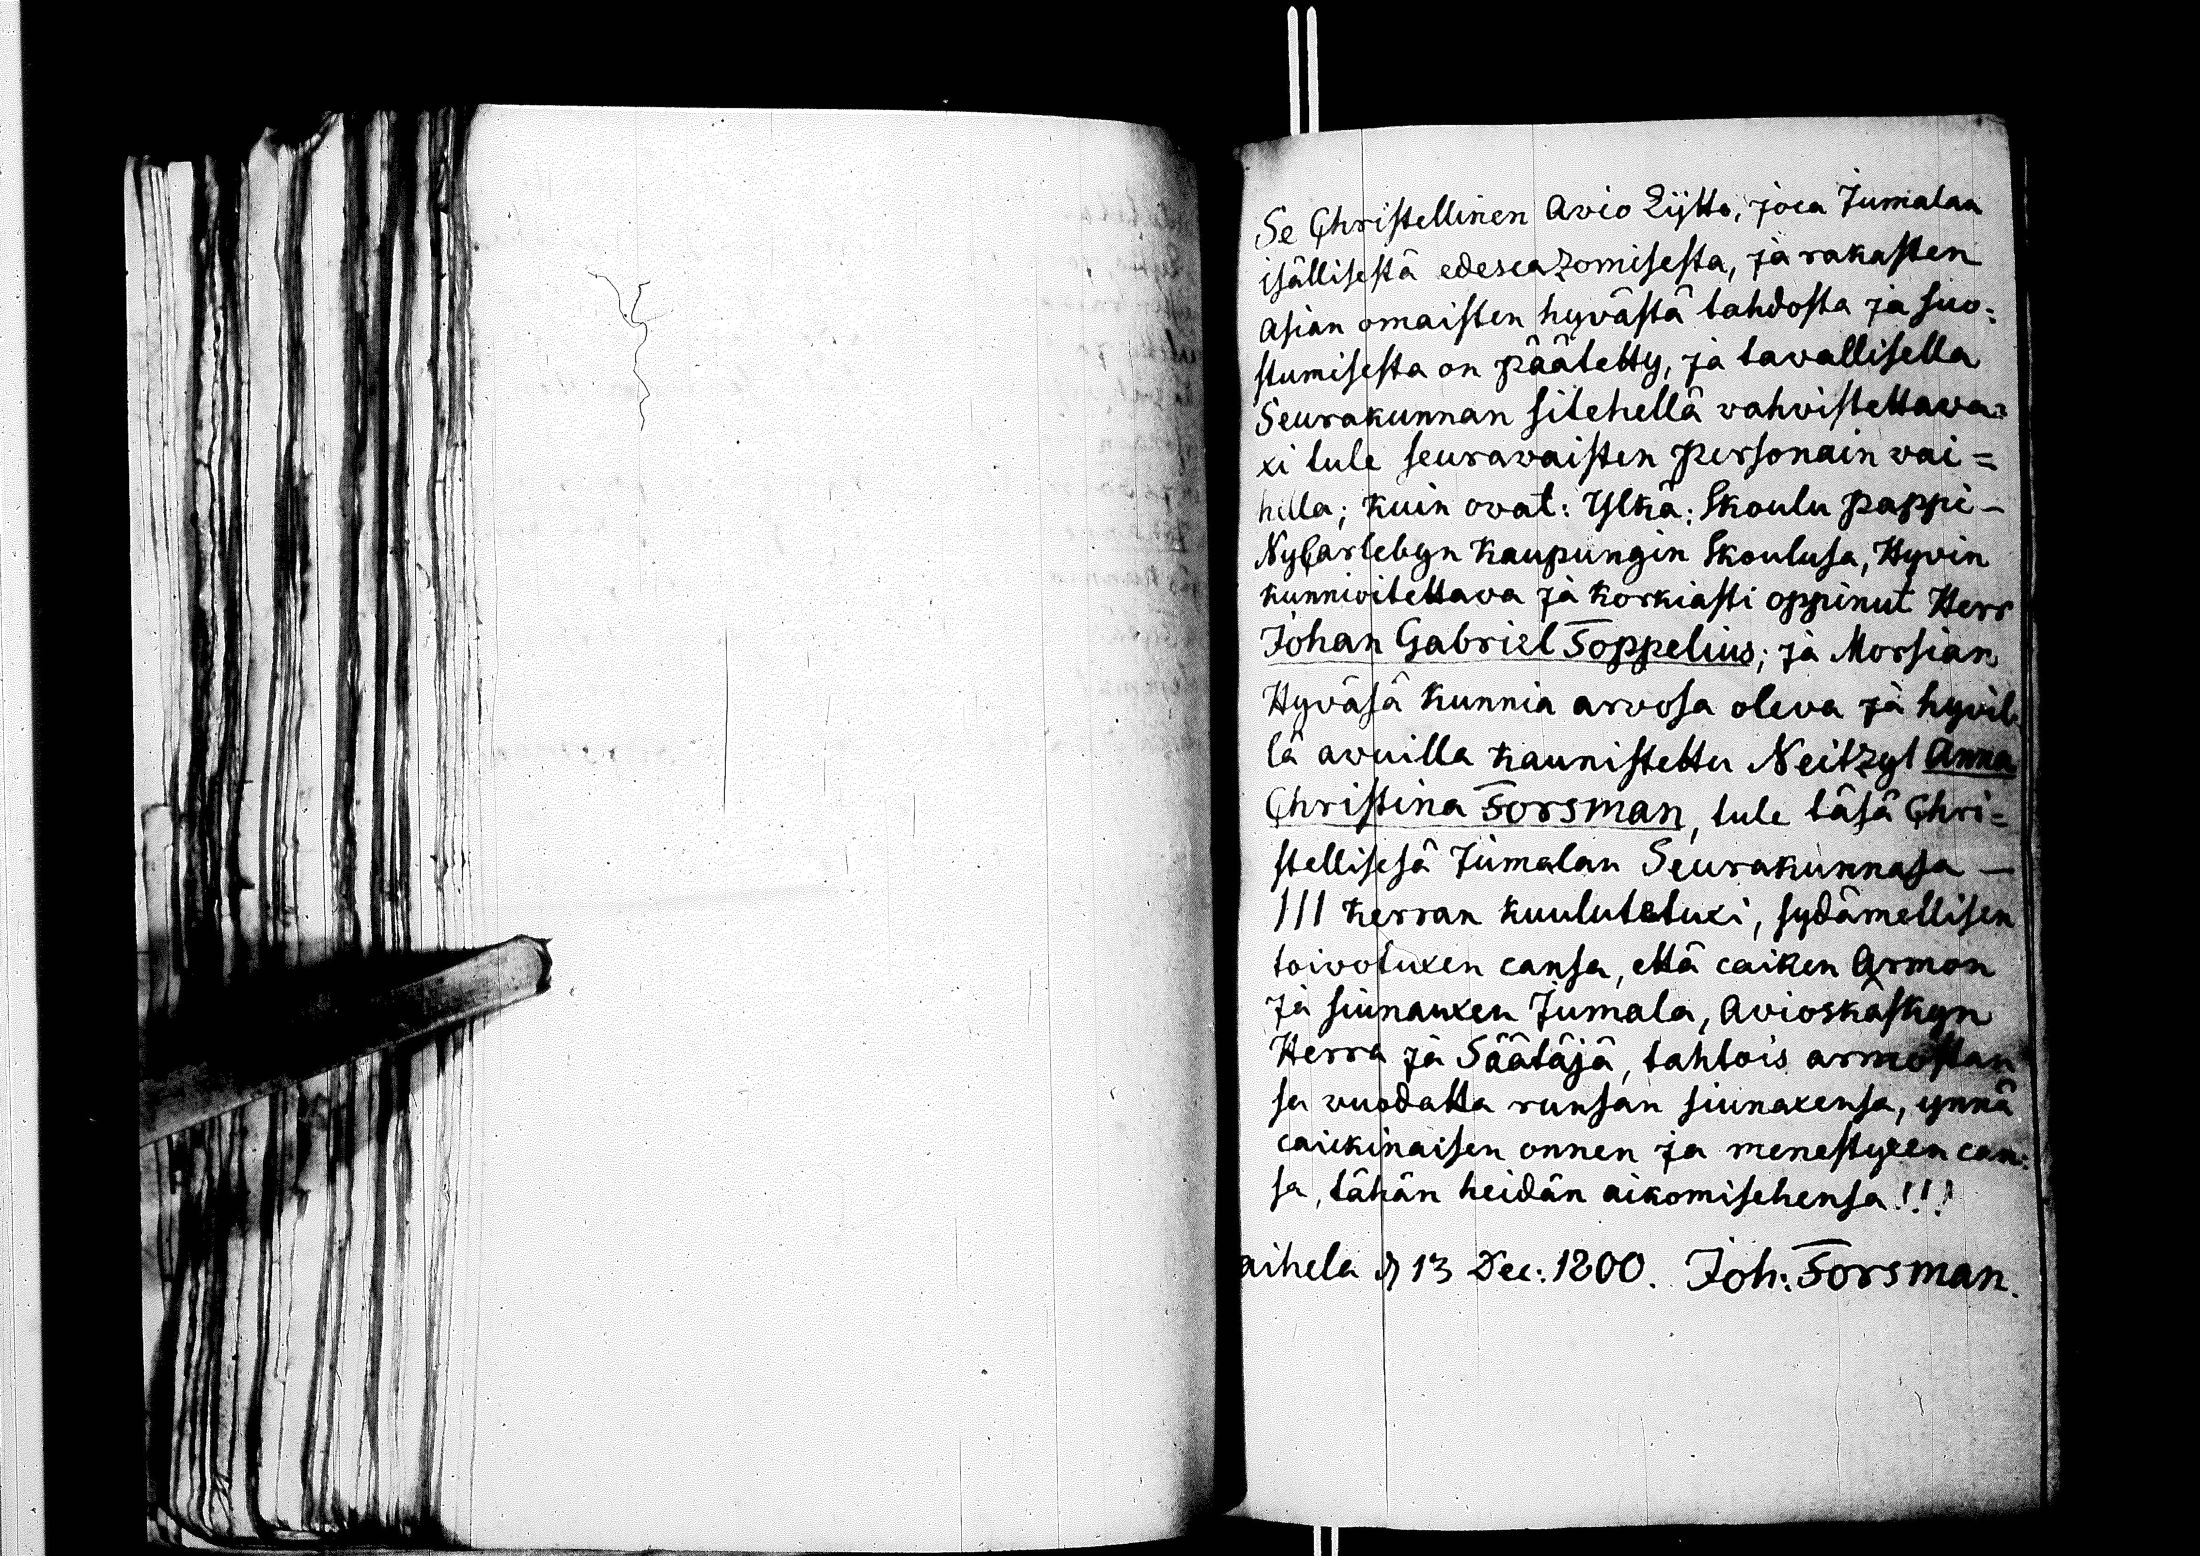 Se Christellinen Avio Lijtto, joca Jumalan
isällisestä edescazomisesta, ja rakasten
Asian omaisten hyvästä tahdosta ja suo:
stumisesta on päätetty, ja tavallisella
Seurakunnan sitehellä vahvistettava=
xi tule seuravaisten personain vai=
hilla; kuin ovat: Ylkä: Skoulu pappi—
NyCarlebyn Kaupungin Skoulusa, Hyvin
kunnioitettava ja korkiasti oppinut Herr
Johan Gabriel Toppelius; ja Morsian
Hyväsä kunnia arvosa oleva ja hyvil-
lä avuilla kaunistettu Neitzyt Anna
Christina Forsman, tule täsä Chri=
stellisesä Jumalan Seurakunnasa —
III kerran kuulutetuxi, sydämellisen
toivotuxen cansa, että caiken Armon
ja siunauxen Jumala, Avioskäskyn
Herra ja Säätäjä, tahtois armostan
sa vuodatta runsan siunaxensa, ynnä
caickinaisen onnen ja menestyxen can:
sa, tähän heidän aikomisehensa!!!
aihela d 13 Dec: 1800. Joh: Forsman.